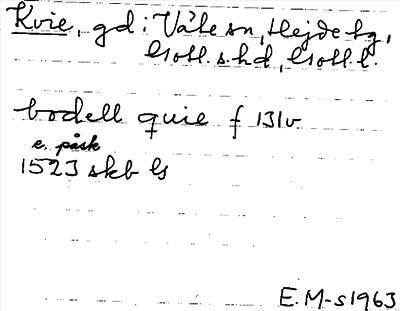 Kvie, gd i Väte sn, Hejde tg,
Gotl. s. hd, Gotl. l.
bodell quie f 131v
e. påsk
1523 skb G
E.M-s 1963